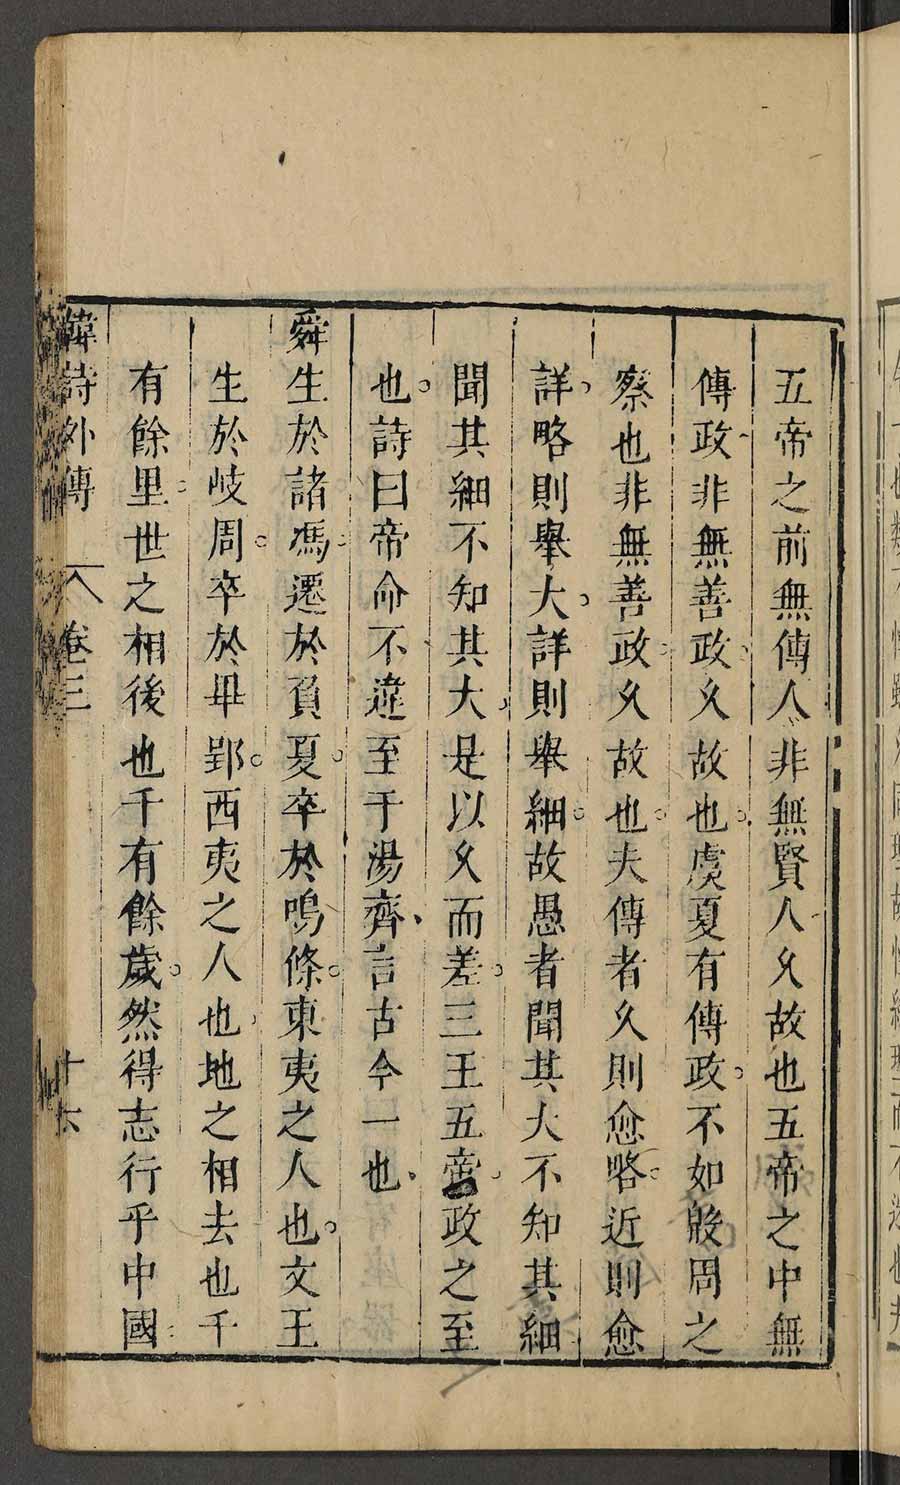 五帝之前無傳人非無賢人久故也五帝之中無
傳政非無善政久故也虞夏有傳政不如殷周之
察也非無善政久故也夫傳者久則愈略近則愈
詳略則舉大詳則舉細故愚者聞其大不知其細
聞其細不知其大是以久而差三王五帝政之至
也詩曰帝命不違至于湯齊言古今一也
舜生於諸馮遷於負夏卒於鳴條東夷之人也文王
生於岐周卒於畢郢西夷之人也地之相去也千
有餘里世之相後也千有餘歲然得志行乎中國
韓詩外傳 卷三 十六